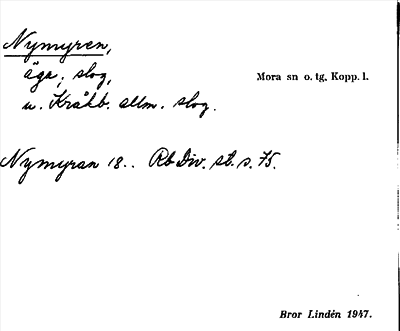 Nymyren,
äga; slog,
Mora sn o. tg, Kopp. l.
u. Kråkb. allm. slog.
Nymyran 18.. Rb Div. st. s. 75.
Bror Lindén 1947.